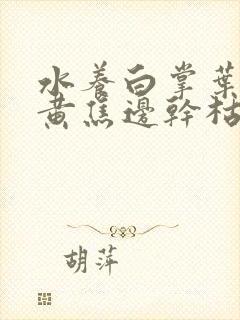 水養白掌葉
黃焦邊幹枯
胡萍